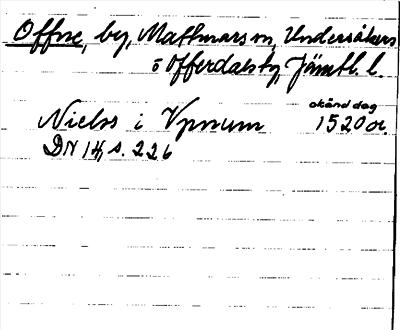 Offne, by, Mattmars sn, Undersåkers
o Offerdals tg, Jämtl. l.
okänd dag
Nielss i Vpnum 1520 or.
DN 14, s. 226